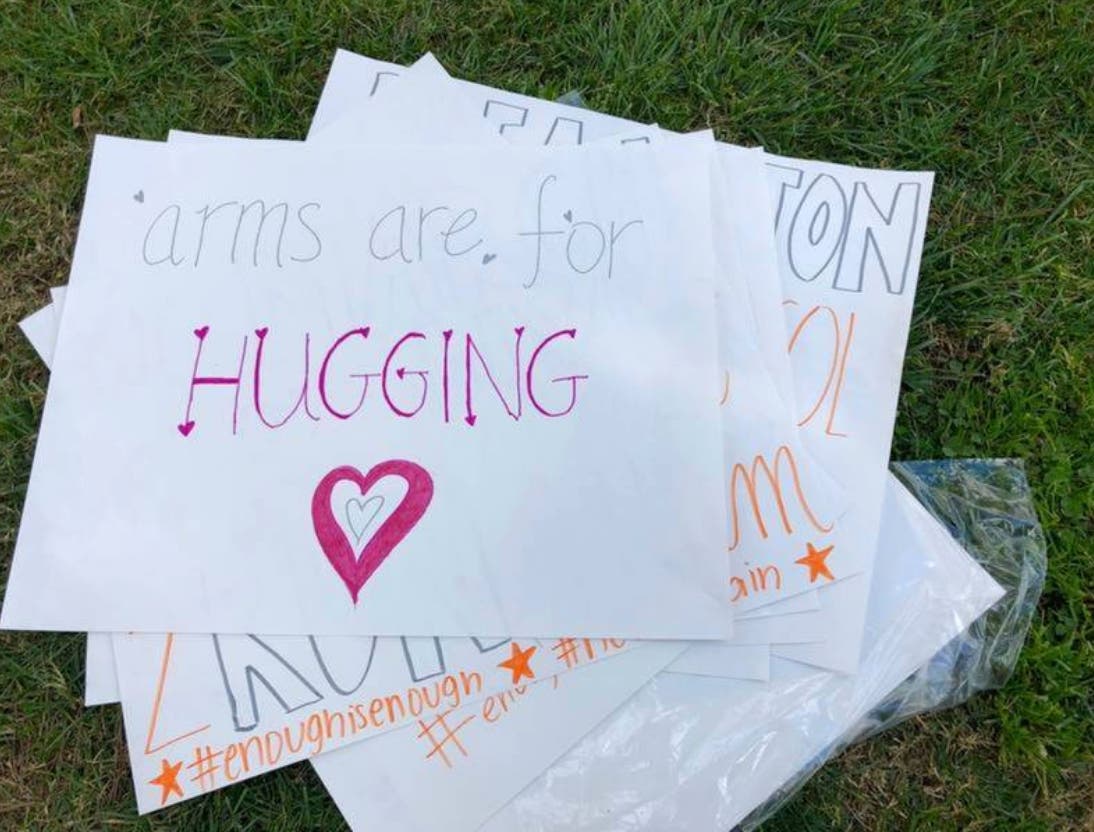 arms are for
HUGGING
TON
OL
m
ain
#enoughisenough
#